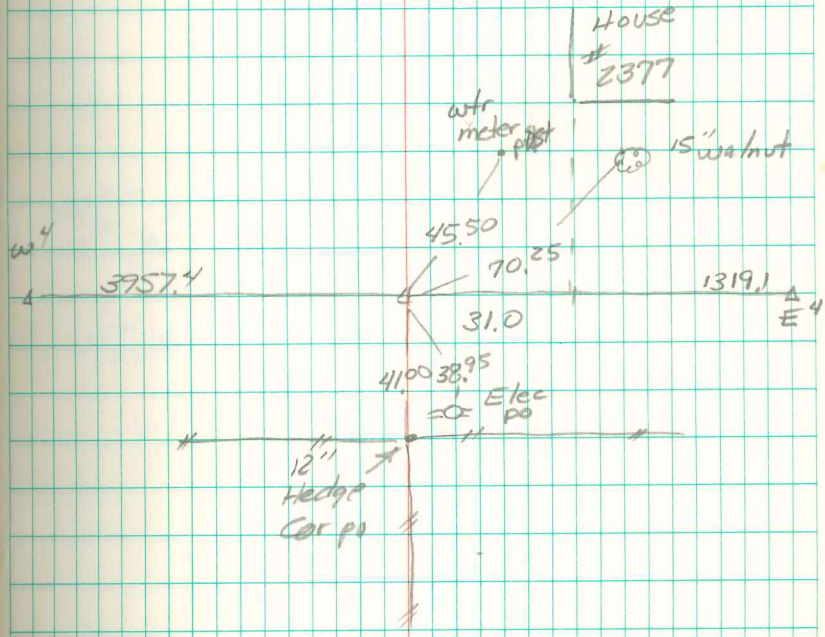 House
#
2377
wtr
meter
15" walnut
45.50
70.25
W 4
3957.4
1319.1
E 4
31.0
41.00 38.95
Elec
po
12"
Hedge
Cor po